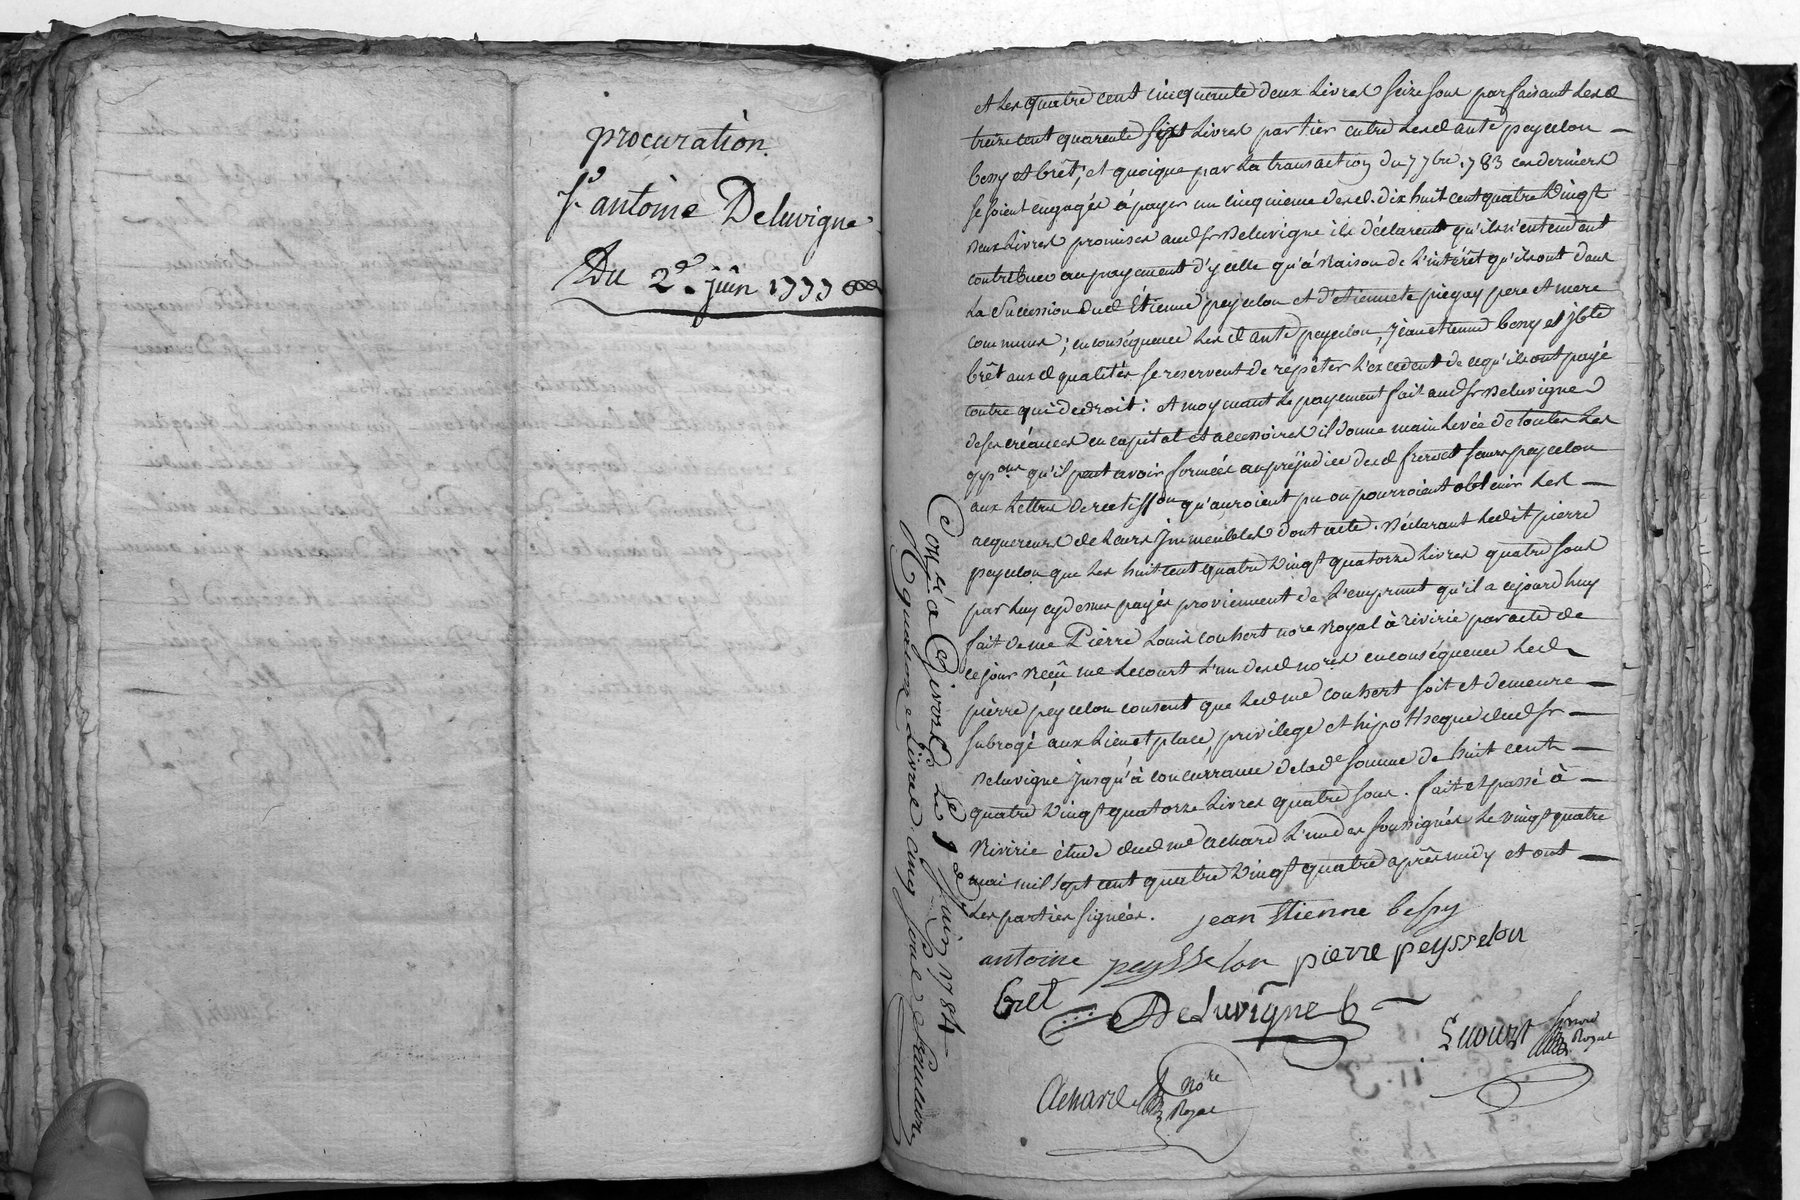 procuration
Sr antoine Deluvigne
Du 2e. juin 1777
et les quatre cent cinquante deux livres seize sous parfaisant lesd
treize cent quarente sept livres partier entre lesd ante peycelon —
bessy et brêt; et quoique par la transaction du 7 7bre 1783 ces derniers
se soient engagés à payer un cinquieme desd. dix huit cent quatre vingt
deux livres promises aud sr Deluvigne ils déclarent qu'ils n'entendent
contribuer au payement d'ycelle qu'à raison de l'intérêt qu'ils ont dans
la succession dud Étienne peycelon et d'etiennete piegay pere et mere
communs; en conséquence lesd ante peycelon, jean etienne bessy et jbte
brêt auxd qualités se reservent de répéter l'excedent de ce qu'ils ont payé
contre qui de droit: et moyenant le payement fait aud sr Deluvigne
de ses créances en capital et accessoires il donne main levée de toutes les
opp.ons qu'il peut avoir formées au préjudice desd freres et seurs peycelon
aux lettres de ratiff.on qu'auroient pu ou pourroient obtenir les —
acquereurs de leurs jmmeubles dont acte. Déclarant ledit pierre
peycelon que les huit cent quatre vingt quatorze livres quatre sous
par luy cy dessus payés proviennent de l'emprunt qu'il a cejourd'huy
fait de me Pierre Louis couhert nore Royal à rivirie par acte de
ce jour reçu me Lecourt l'un desd no.res en conséquence led
pierre peycelon consent que led me couhert soit et demeure —
subrogé aux lieu et place, privilege et hipotheque dud sr —
Deluvigne jusqu'à concurrance de lade somme de huit cent —
quatre vingt quatorze livres quatre sous. fait et passé à —
Rivirie étude dud me achard l'un des soussignés le vingt quatre
mai mil sept cent quatre vingt quatre après midy et ont —
les parties signées. jean Etienne bessy
antoine peysselon pierre peysselon
Bret Deluvigne
Lecourt nore Royal
Achard nore Royal
Conlé a Givors Le 1er juin 1784
R quatorze Livres cinq sous